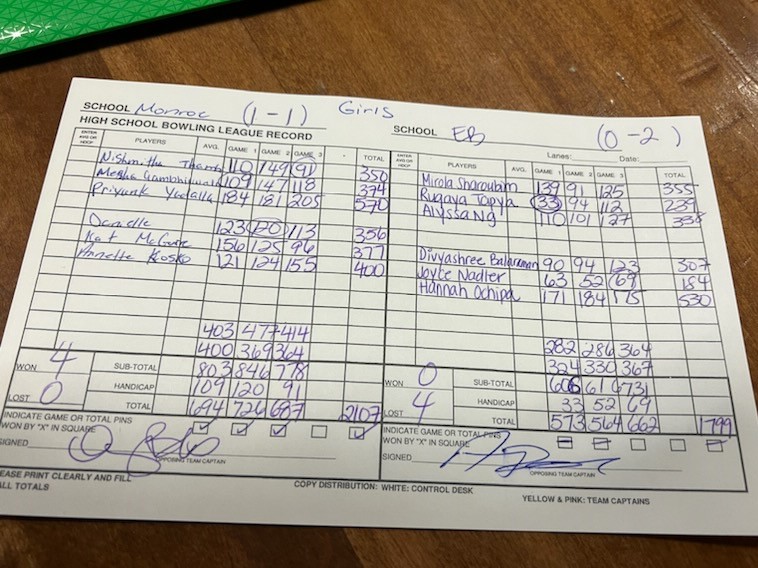 SCHOOL Monroe (1-1) Girls
HIGH SCHOOL BOWLING LEAGUE RECORD
ENTER AVG OR HDCP PLAYERS AVG. GAME 1 GAME 2 GAME 3 TOTAL
110 149 91 350
109 147 118 374
184 181 205 570
Danielle 123 120 113 356
Kat McGuire 156 125 96 377
Annette Kosko 121 124 155 400
403 477 414
400 369 364
WON 4 SUB-TOTAL 803 846 778
HANDICAP 109 120 91
LOST 0 TOTAL 694 726 687 2107
INDICATE GAME OR TOTAL PINS
WON BY "X" IN SQUARE
SIGNED
OPPOSING TEAM CAPTAIN
SCHOOL EB (0-2)
Lanes: Date:
ENTER AVG OR HDCP PLAYERS AVG. GAME 1 GAME 2 GAME 3 TOTAL
Mirola Sharoubim 139 91 125 355
Rugaya Topya 33 94 112 239
Alyssa Ng 110 101 127 338
Divyashree Balaraman 90 94 123 307
Joyce Nadler 63 52 69 184
Hannah Ochipa 171 184 175 530
282 286 364
324 330 367
WON 0 SUB-TOTAL 606 616 731
HANDICAP 33 52 69
LOST 4 TOTAL 573 564 662 1799
INDICATE GAME OR TOTAL PINS
WON BY "X" IN SQUARE
SIGNED
OPPOSING TEAM CAPTAIN
EASE PRINT CLEARLY AND FILL
ALL TOTALS
COPY DISTRIBUTION: WHITE: CONTROL DESK YELLOW & PINK: TEAM CAPTAINS